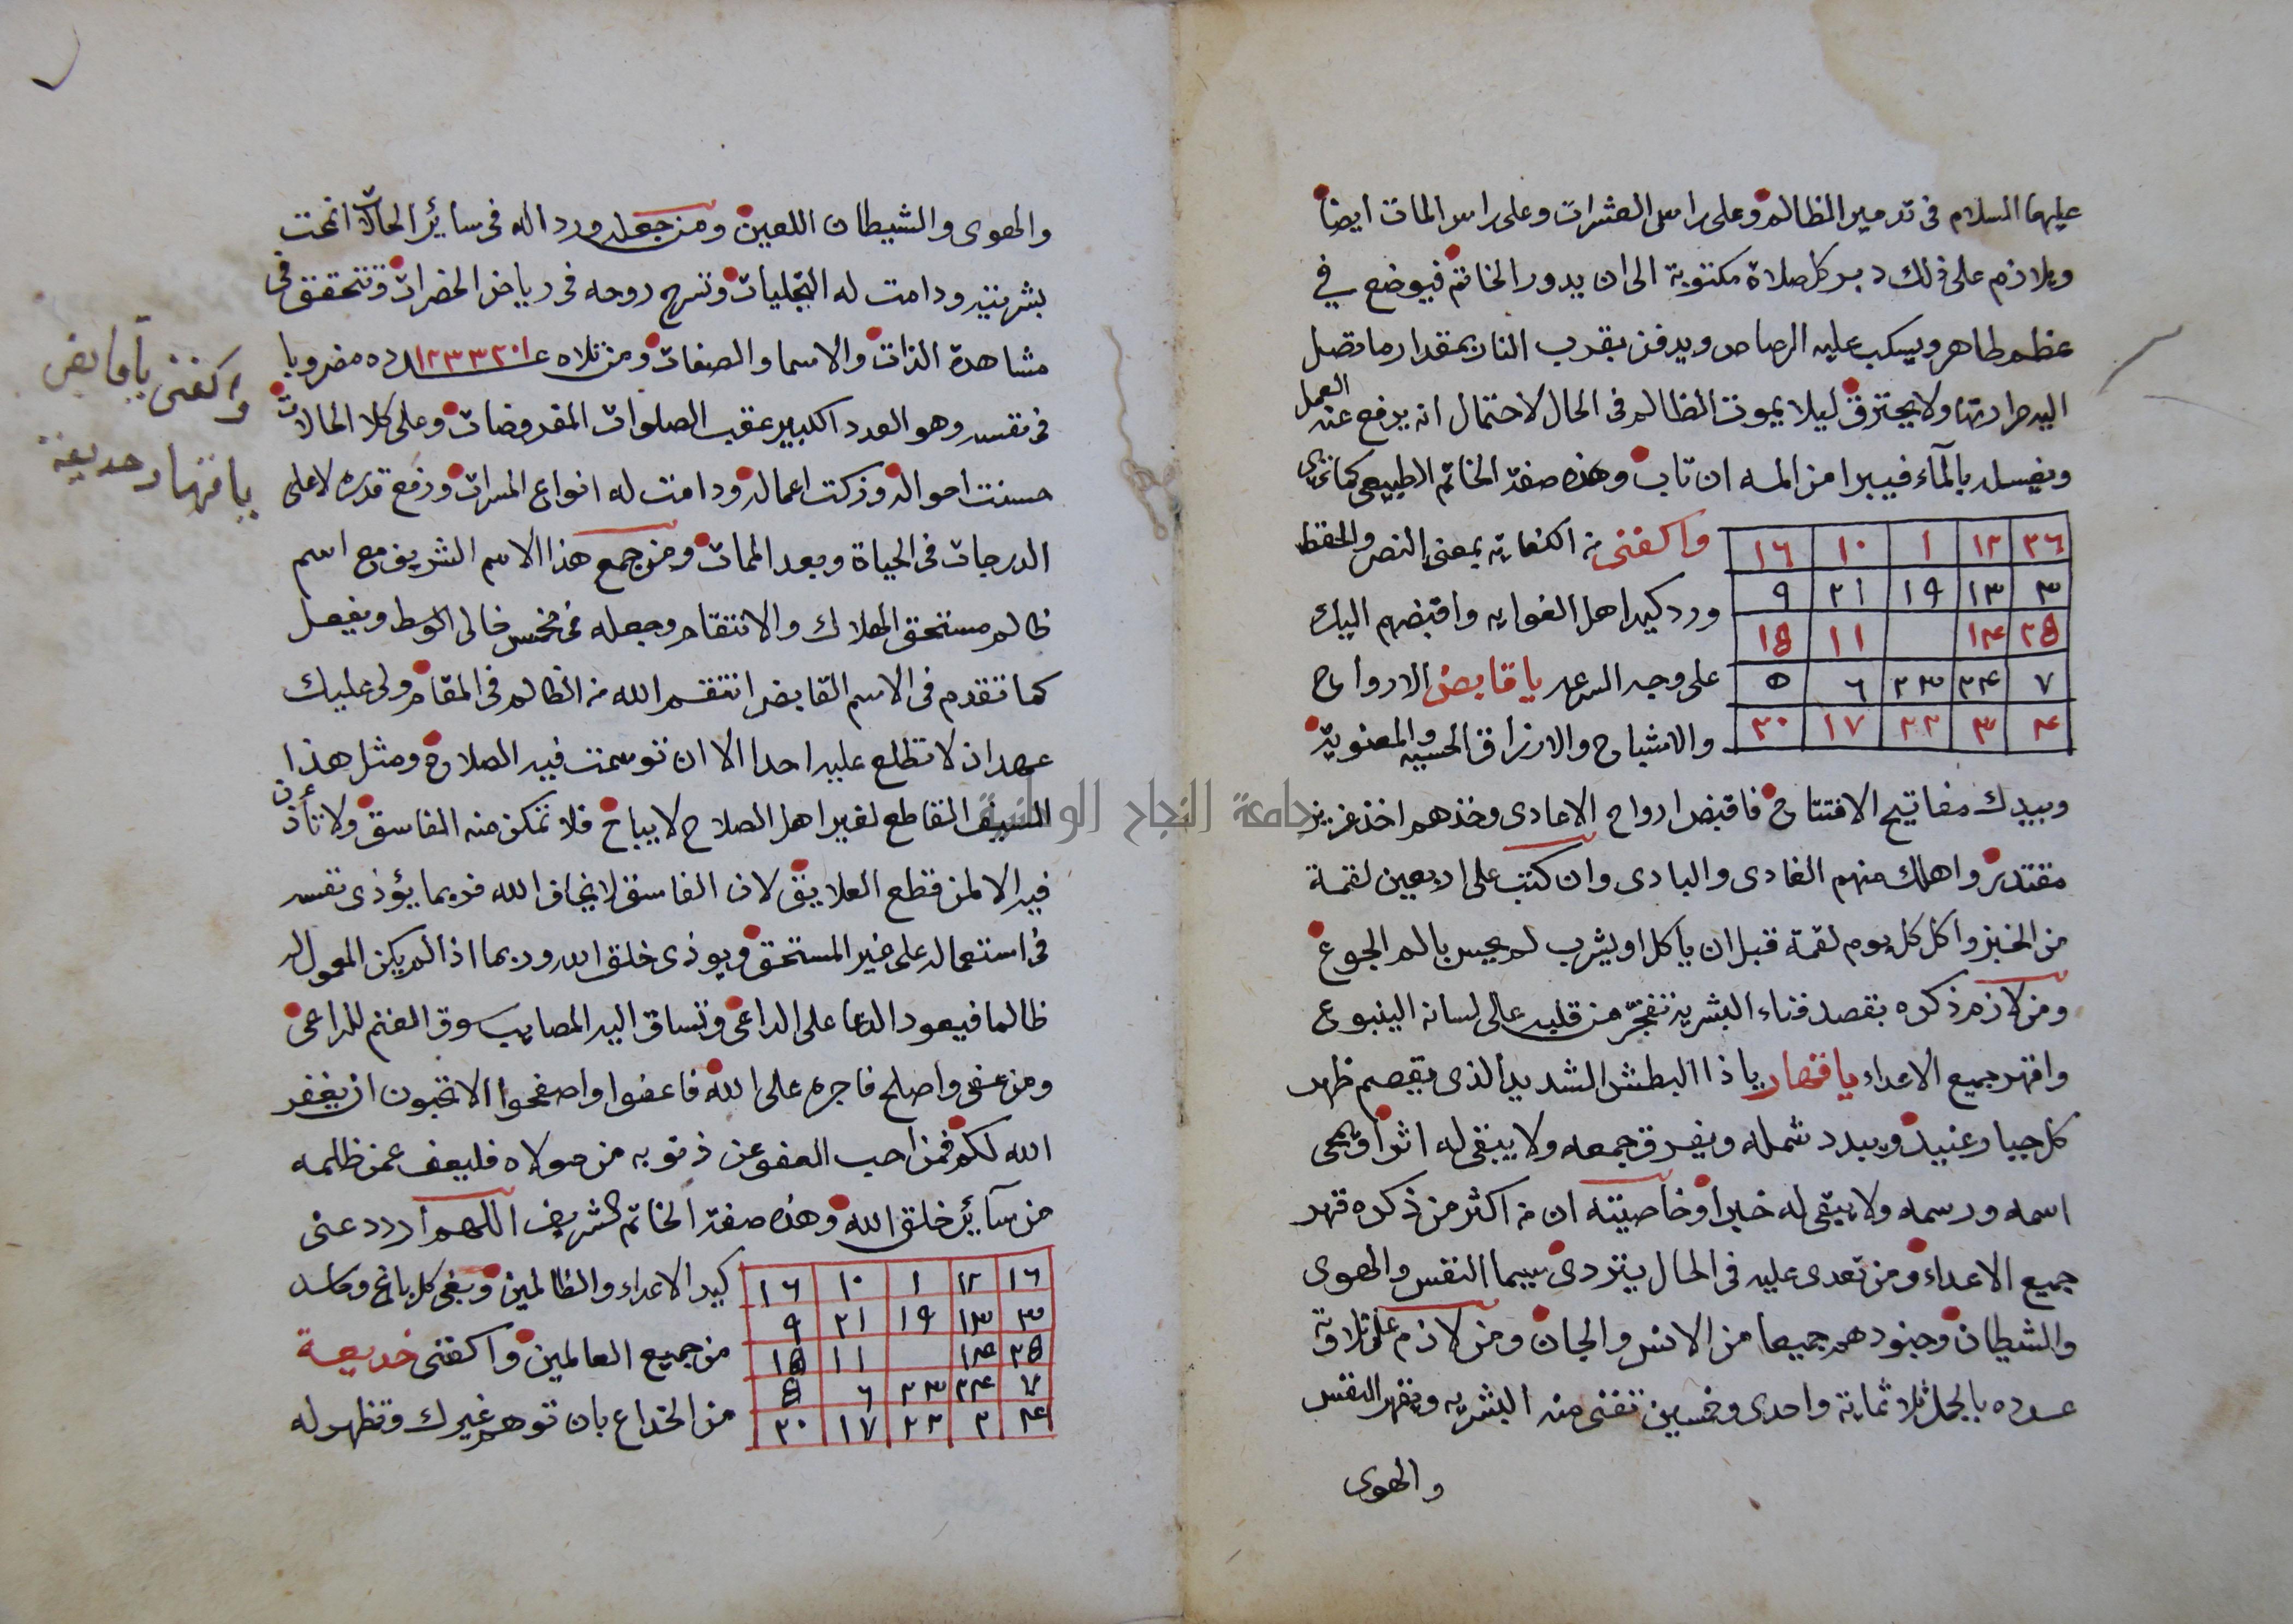 عليهما السلام فى تدمير الظالم وعلى راس العشرات وعلى راس المات ايضا
ويلازم على ذلك دبر كل صلاة مكتوبة الى ان يدور الخاتم فيوضع في
عظم طاهر ويسكب عليه الرصاص ويدفن بقرب النار بمقدار ما تصل
اليه حرارتها ولا يحترق ليلا يموت الظالم فى الحال لاحتمال انه يرفع عنه العمل
ويغسله بالمآء فيبرا من المه ان تاب وهذه صفة الخاتم الطبيعى كما ترى
٢٦ ١٢ ١ ١٠ ١٦
٣ ١٣ ١٩ ٢١ ٩
٢٥ ١٤ ١١ ١٥
٧ ٢٤ ٢٣ ٦ ٥
٤ ٣ ٢٢ ١٧ ٢٠
واكفنى من الكفاية بمعنى النصر والحفظ
ورد كيد اهل الغوايه واقبضهم اليك
على وجه السرعه يا قابض الارواح
والاشباح والارزاق الحسيه والمعنوية
وبيدك مفاتيح الافتتاح فاقبض ارواح الاعادى وخذهم اخذ عزيز
مقتدر واهلك منهم الغادى والبادى وان كتب على اربعين لقمة
من الخبز واكل كل يوم لقمة قبل ان ياكل او يشرب لم يحس بالم الجوع
ومن لازم ذكره بقصد فناء البشرية تفجر من قلبه على لسانه الينبوع
واقهر جميع الاعداء يا قهار يا ذا البطش الشديد الذى يقصم ظهر
كل جبار عنيد ويبدد شمله ويفرق جمعه ولا يبقى له اثرا ويمحى
اسمه ورسمه ولا يبقى له خبرا وخاصيته ان من اكثر من ذكره قهر
جميع الاعداء ومن تعدى عليه فى الحال يتردى سيما النفس والهوى
والشيطان وجنودهم جميعا من الانس والجان ومن لازم على تلاوته
عدده بالجمل ثلاثماية واحدى وخمسين تفنى منه البشريه ويقهر النفس
والهوى
والهوى والشيطان اللعين ومن جعله وردا له فى سائر الحالات انمحت
بشريته ودامت له التجليات وتسرح روحه فى رياض الحضرات وتتحقق فى
مشاهدة الذات والاسما والصفات ومن تلاه عدده مضروبا
فى نفسه وهو العدد الكبير عقب الصلوات المفروضات وعلى كلا الحالات
حسنت احواله وزكت اعماله ودامت له انواع المسرات ورفع قدره لاعلى
الدرجات فى الحياة وبعد الممات ومن جمع هذا الاسم الشريف مع اسم
ظالم مستحق الهلاك والانتقام وجعله فى مخمس خالى الوسط ويفعل
كما تقدم فى الاسم القابض انتقم الله من الظالم فى المقام ولى عليك
عهد ان لا تطلع عليه احدا الا ان توسمت فيه الصلاح ومثل هذا
السيف القاطع لغير اهل الصلاح لا يباح فلا تمكن منه الفاسق ولا تأذن
فيه الا لمن قطع العلايق لان الفاسق لا يخاف الله فربما يؤذى نفسه
فى استعماله على غير المستحق ويوذى خلق الله وربما اذا لم يكن المعمول له
ظالما فيعود الدعا على الداعى وتساق اليه المصايب سوق الغنم للراعى
ومن عفى واصلح فاجره على الله فاعفوا واصفحوا الا تحبون ان يغفر
الله لكم فمن احب العفو عن ذنوبه من مولاه فليعف عمن ظلمه
من سآئر خلق الله وهذه صفة الخاتم الشريف اللهم اردد عنى
١٦ ١٢ ١ ١٠ ١٦
٣ ١٣ ١٩ ٢١ ٩
٢٥ ١٤ ١١ ١٥
٧ ٢٤ ٢٣ ٦ ٥
٤ ٢ ٢٢ ١٧ ٢٠
كيد الاعداء والظالمين وبغى كل باغ وحاسد
من جميع العالمين واكفنى خديعة
من الخداع بان توهم غيرك وتظهر له
واكفنى يا قابض
يا قهار خديعة
جامعة النجاح الوطنية